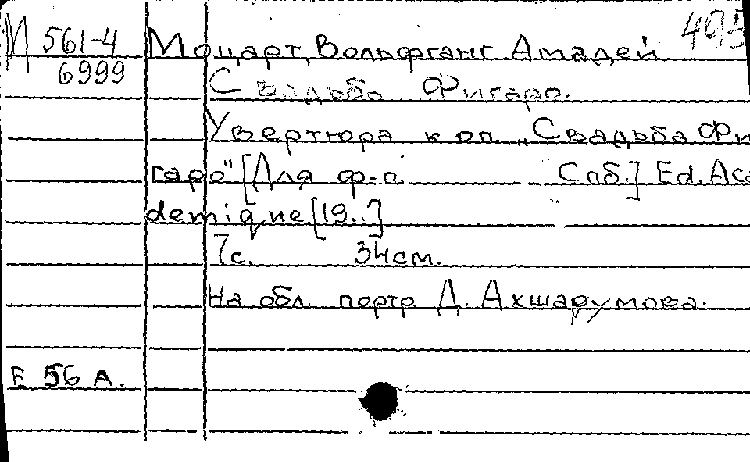 М 561-4 Моцарт, Вольфганг Амадей 495
6999 Свадьба Фигаро.
Увертюра к оп. „Свадьба Фи
гаро" [Для ф-п. Спб.] Ed. Aca
demique [19..]
7с. 34см.
На обл. портр Д. Ахшарумова.
Е 56 А.